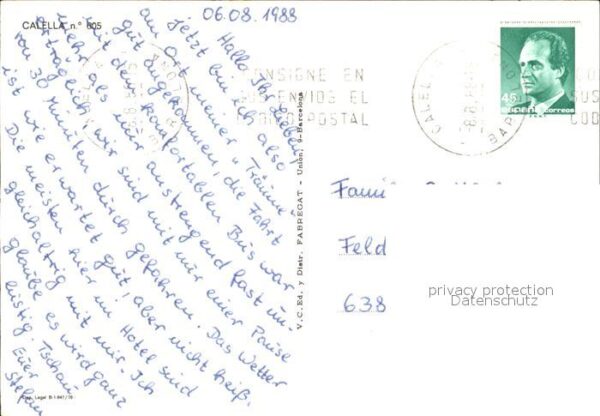 CALELLA n.° 605
06.08.1988
Hallo Ihr Lieben!
Jetzt bin ich also
am Ort meiner "Träume"
gut angekommen, die Fahrt
mit dem komfortablen Bus war
mehr als nur anstrengend fast un-
erträglich, wir sind mit nur einer Pause
von 30 Minuten durch gefahren. Das Wetter
ist wie erwartet gut, aber nicht heiß.
Die meisten hier im Hotel sind
gleichaltrig mit mir. Ich
glaube es wird ganz
lustig. Tschau
Euer
Stefan
Dep. Legal B-1.941/
V.C. Ed. y Distr. FABREGAT - Unión, 9-Barcelona
CONSIGNE EN
SUS ENVIOS EL
CODIGO POSTAL
CALEL
BAR
45
ESPAÑA correos
CO
SUS
COD
Fami
Feld
638
privacy protection
Datenschutz